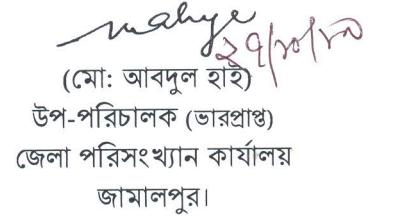 (মো: আবদুল হাই)
উপ-পরিচালক (ভারপ্রাপ্ত)
জেলা পরিসংখ্যান কার্যালয়
জামালপুর।